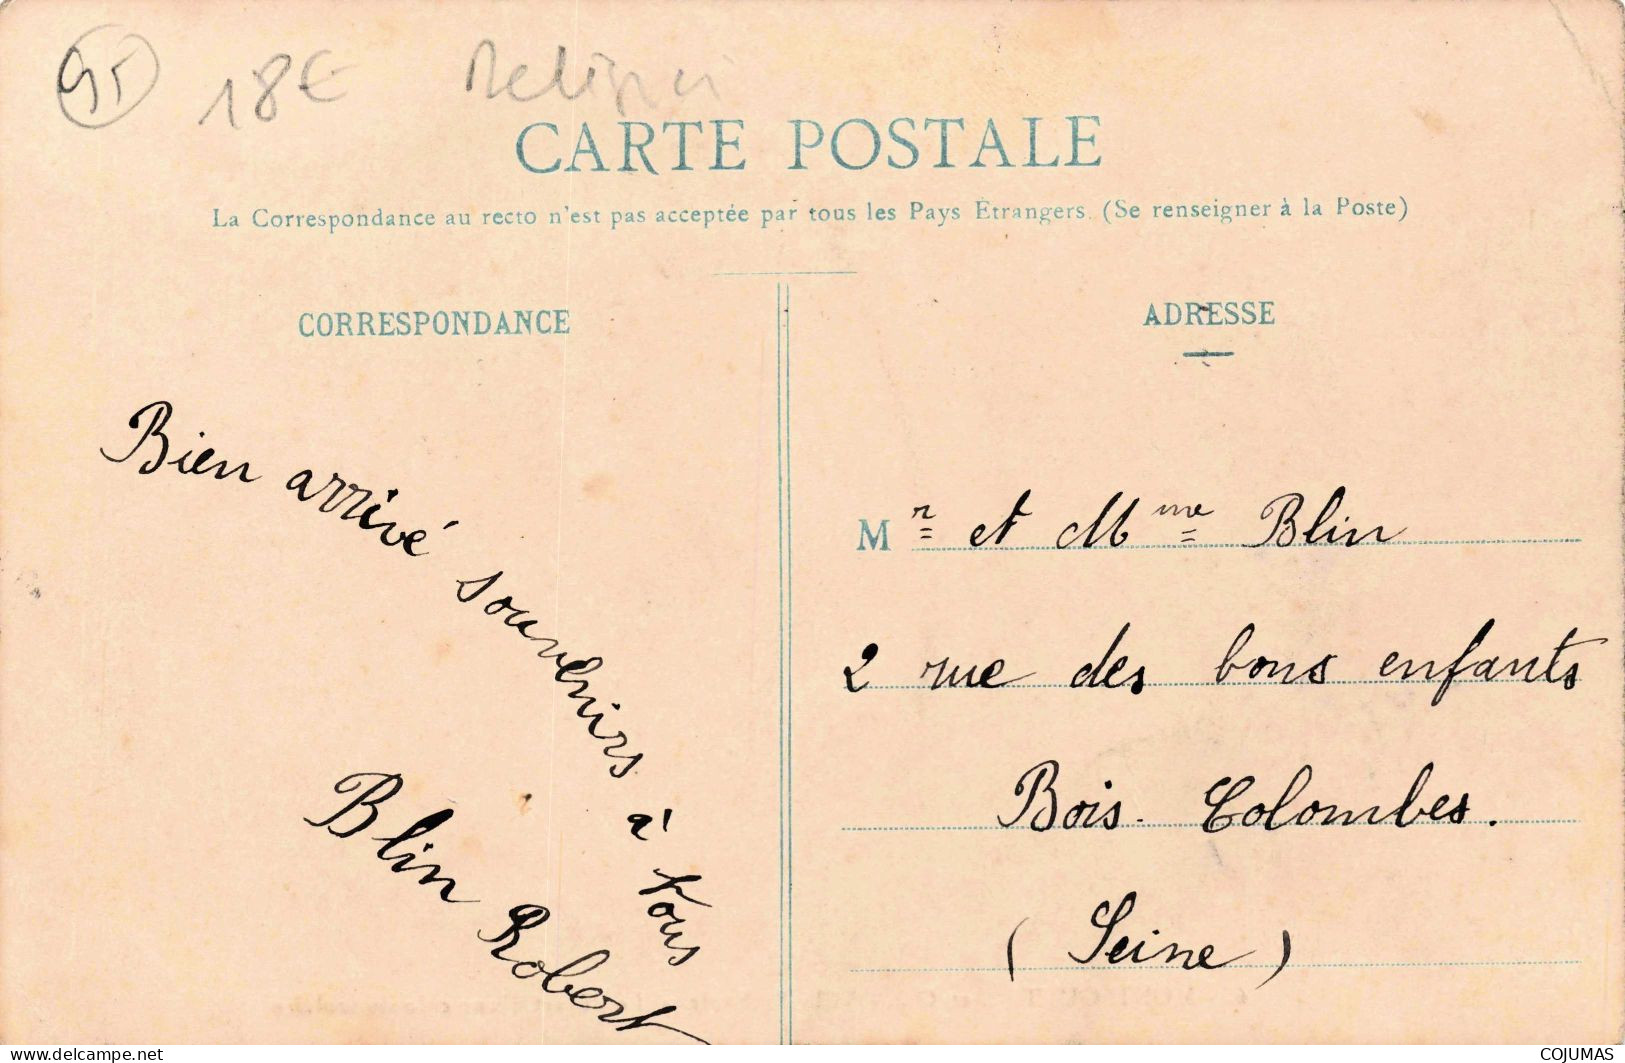 95
18€
CARTE POSTALE
La Correspondance au recto n'est pas acceptée par tous les Pays Étrangers. (Se renseigner à la Poste)
CORRESPONDANCE
Bien arrivé souvenirs à tous
Blin Robert
ADRESSE
Mr et Mme Blin
2 rue des bons enfants
Bois-Colombes.
(Seine)
www.delcampe.net
COJUMAS